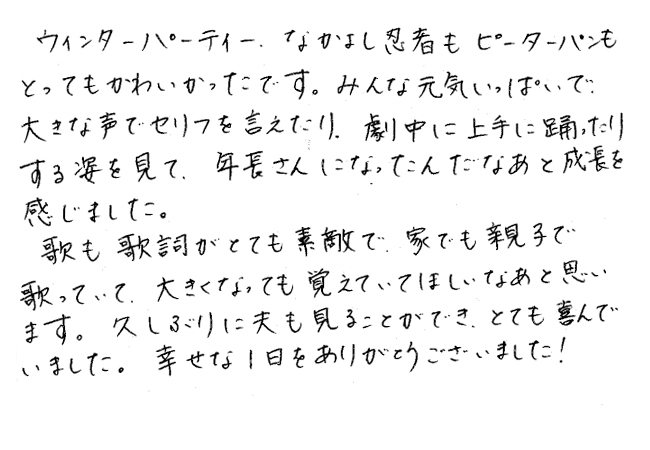 ウィンターパーティー、なかよし忍者も ピーターパンも
とってもかわいかったです。みんな元気いっぱいで、
大きな声でセリフを言えたり、劇中に上手に踊ったり
する姿を見て、年長さんになったんだなあと成長を
感じました。
歌も 歌詞がとても素敵で、家でも親子で
歌っていて、大きくなっても覚えていてほしいなあと思い
ます。久しぶりに夫も見ることができ、とても喜んで
いました。幸せな1日をありがとうございました!